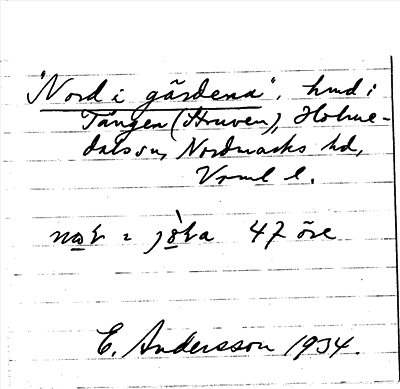 "Nord i gärdena", hmd i
Tången (Struven), Holme-
dals sn, Nordmarks hd,
Värml l.
47 öre
E. Andersson 1934.